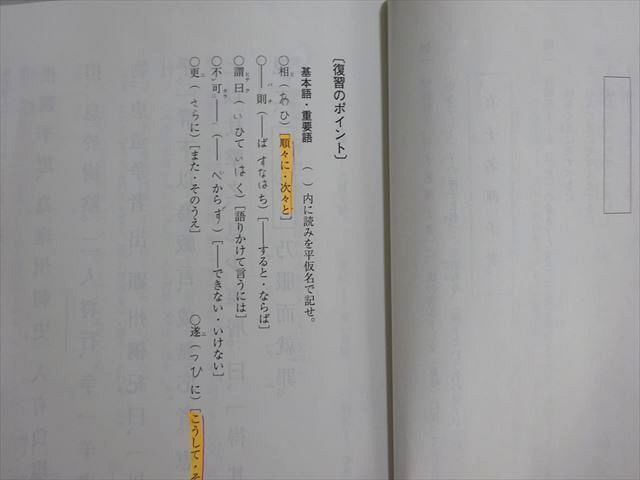 [復習のポイント]
基本語・重要語 ( )内に読みを平仮名で記せ。
○相ヒ(あひ)[順々に・次々と]
○――バ則チ(――ばすなはち)[――すると・ならば]
○謂ヒテ曰ク(いひていはく)[語りかけて言うには]
○不可カラ――(――べからず)[――できない・いけない]
○更ニ(さらに)[また・そのうえ] ○遂ニ(つひに)[こうして・そ